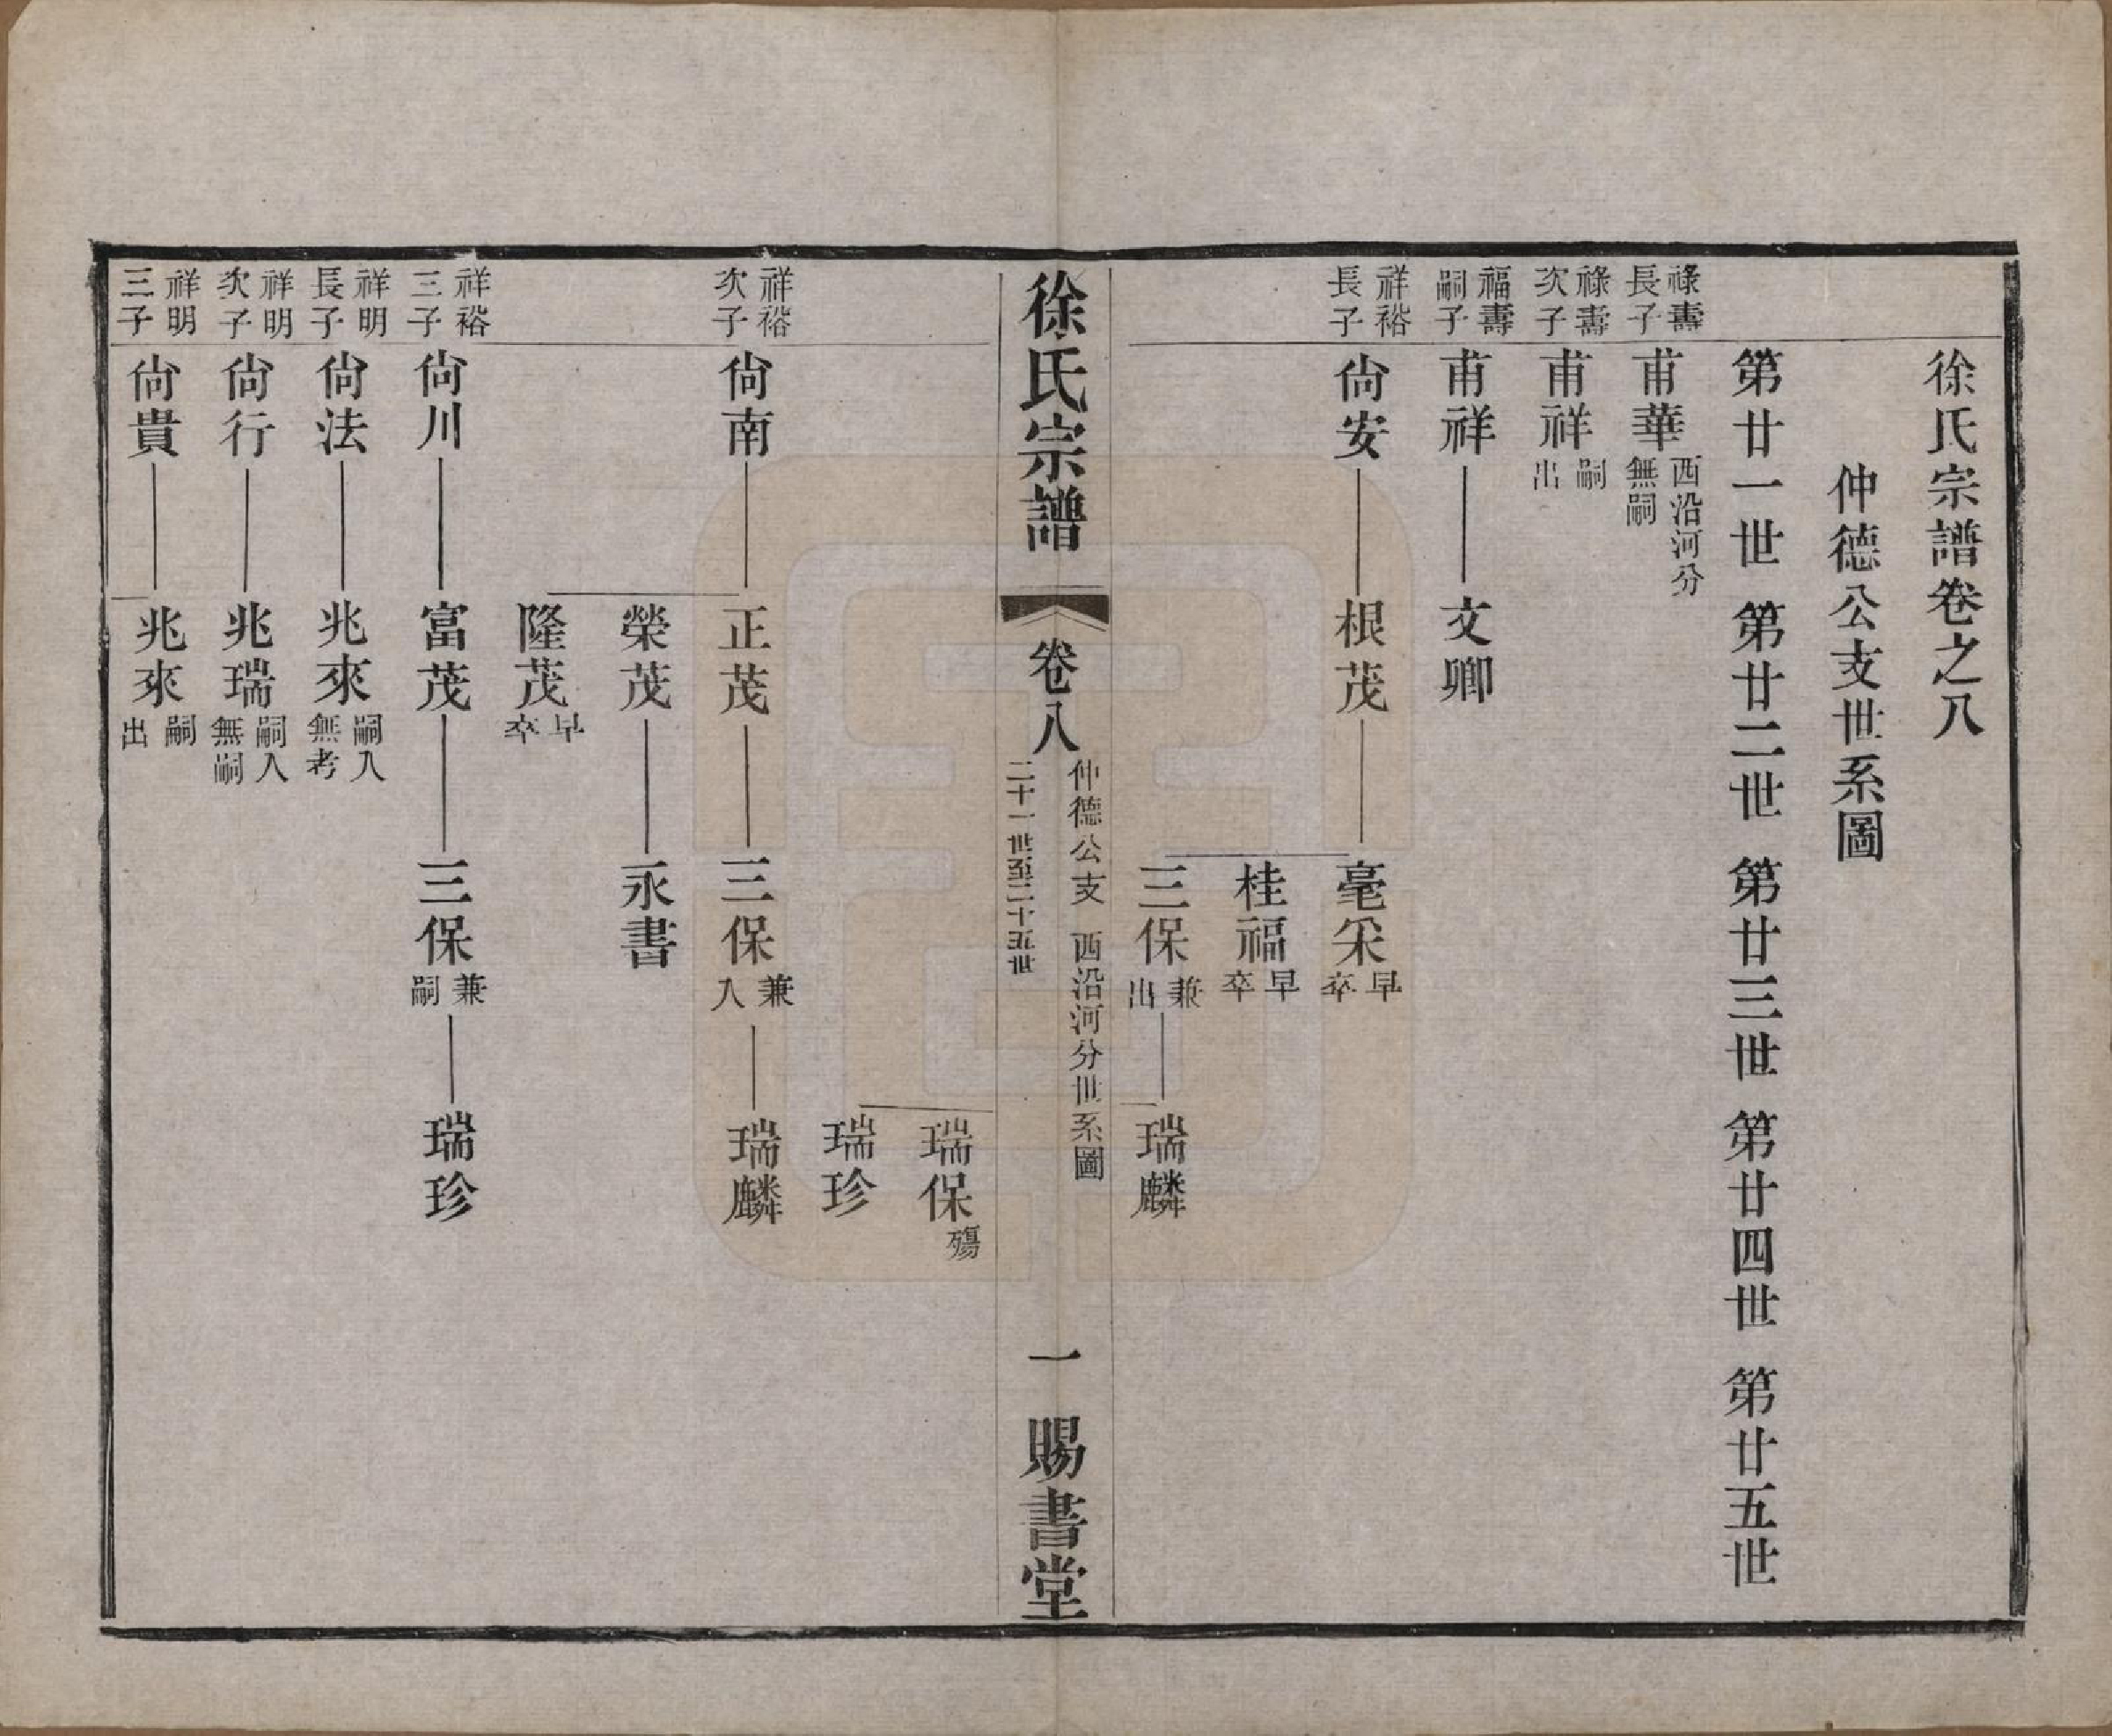 徐氏宗譜卷之八
仲德公支世系圖
第廿一世 第廿二世 第廿三世 第廿四世 第廿五世
祿壽長子 甫華 西沿河分無嗣
祿壽次子 甫祥 嗣出
福壽嗣子 甫祥 文卿
祥裕長子 尙安 根茂 毫罙 早卒
桂福 早卒
三保 兼出 瑞麟
徐氏宗譜 卷八 仲德公支 西沿河分世系圖 二十一世至二十五世 一 賜書堂
瑞保 殤
瑞珍
祥裕次子 尙南 正茂 三保 兼入 瑞麟
榮茂 永書
隆茂 早卒
祥裕三子 尙川 富茂 三保 兼嗣 瑞珍
祥明長子 尙法 兆來 嗣入無考
祥明次子 尙行 兆瑞 嗣入無嗣
祥明三子 尙貴 兆來 嗣出